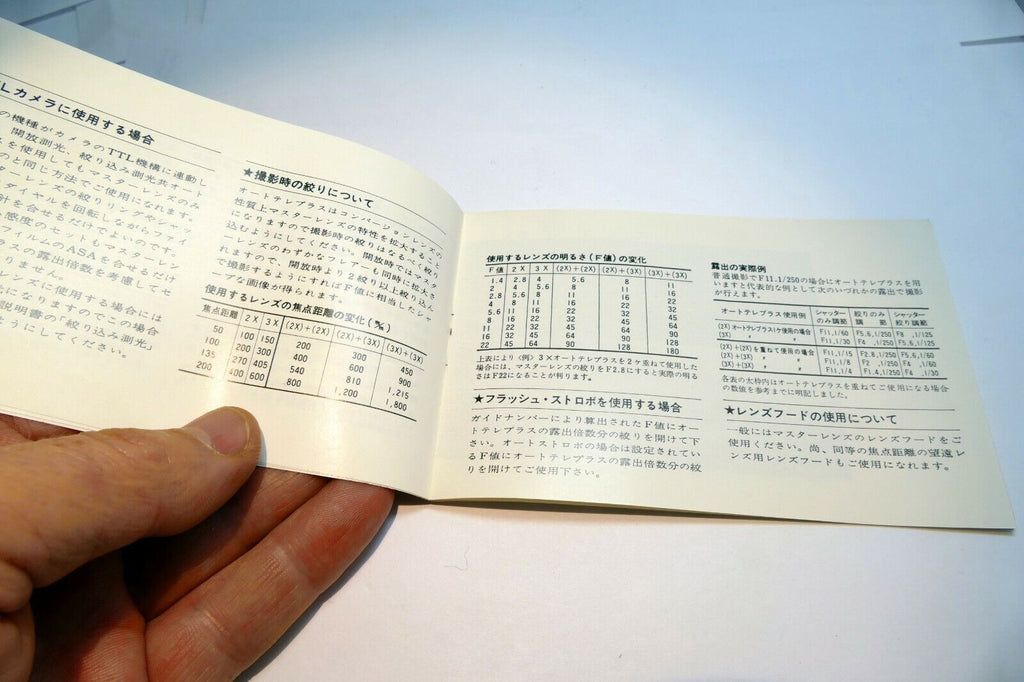 Lカメラに使用する場合
の機種がカメラのTTL機構に連動し
開放測光、絞り込み測光共オート
を使用してもマスターレンズのみ
のと同じ方法でご使用になれます。
ターレンズの絞りリングやシャッ
ダイヤルを回転しながらファイ
針を合せるだけでよいのです。
感度のセットもマスターレン
フィルムのASAを合せるだけ
ラスの露出倍数を考慮してセ
りません。
レンズに使用する場合には
になりますのでこの場合
説明書の「絞り込み測光」
ようにしてください。
★撮影時の絞りについて
オートテレプラスはコンバージョンレンズの
性質上マスターレンズの特性を拡大すること
になりますので撮影時の絞りはなるべく絞り
込むようにしてください。開放時ではマスタ
ーレンズのわずかなフレアーも同時に拡大さ
れますので、開放時より2絞り以上絞り込ん
で撮影するようにすればF値に相当したシャ
ープな画像が得られます。
使用するレンズの焦点距離の変化(㎜)
焦点距離 2X 3X (2X)+(2X) (2X)+(3X) (3X)+(3X)
50 100 150 200 300 450
100 200 300 400 600 900
135 270 405 540 810 1,215
200 400 600 800 1,200 1,800
使用するレンズの明るさ(F値)の変化
F値 2X 3X (2X)+(2X) (2X)+(3X) (3X)+(3X)
1.4 2.8 4 5.6 8 11
2 4 5.6 8 11 16
2.8 5.6 8 11 16 22
4 8 11 16 22 32
5.6 11 16 22 32 45
8 16 22 32 45 64
11 22 32 45 64 90
16 32 45 64 90 128
22 45 64 90 128 180
上表により〈例〉3Xオートテレプラスを2ヶ重ねて使用した
場合には、マスターレンズの絞りをF2.8にすると実際の明る
さはF22になることが判ります。
★フラッシュ・ストロボを使用する場合
ガイドナンバーにより算出されたF値にオー
トテレプラスの露出倍数分の絞りを開けて下
さい。オートストロボの場合は設定されてい
るF値にオートテレプラスの露出倍数分の絞
りを開けてご使用下さい。
露出の実際例
普通撮影でF11.1/250の場合にオートテレプラスを用
いますと代表的な例として次のいづれかの露出で撮影
が行えます。
オートテレプラス使用例 シャッターのみ調節 絞りのみ調節 シャッター絞り調節
(2X)オートテレプラス1ケ使用の場合 F11,1/60 F5.6,1/250 F8 ,1/125
(3X) 〃 〃 F11,1/30 F4 ,1/250 F5.6,1/125
(2X)+(2X)を重ねて使用の場合 F11,1/15 F2.8,1/250 F5.6,1/60
(2X)+(3X) 〃 〃 F11,1/8 F2 ,1/250 F4 ,1/60
(3X)+(3X) 〃 〃 F11,1/4 F1.4,1/250 F4 ,1/30
各表の太枠内はオートテレプラスを重ねてご使用になる場合
の数値を参考までに明記しました。
★レンズフードの使用について
一般にはマスターレンズのレンズフードをご
使用ください。尚、同等の焦点距離の望遠レ
ンズ用レンズフードもご使用になれます。